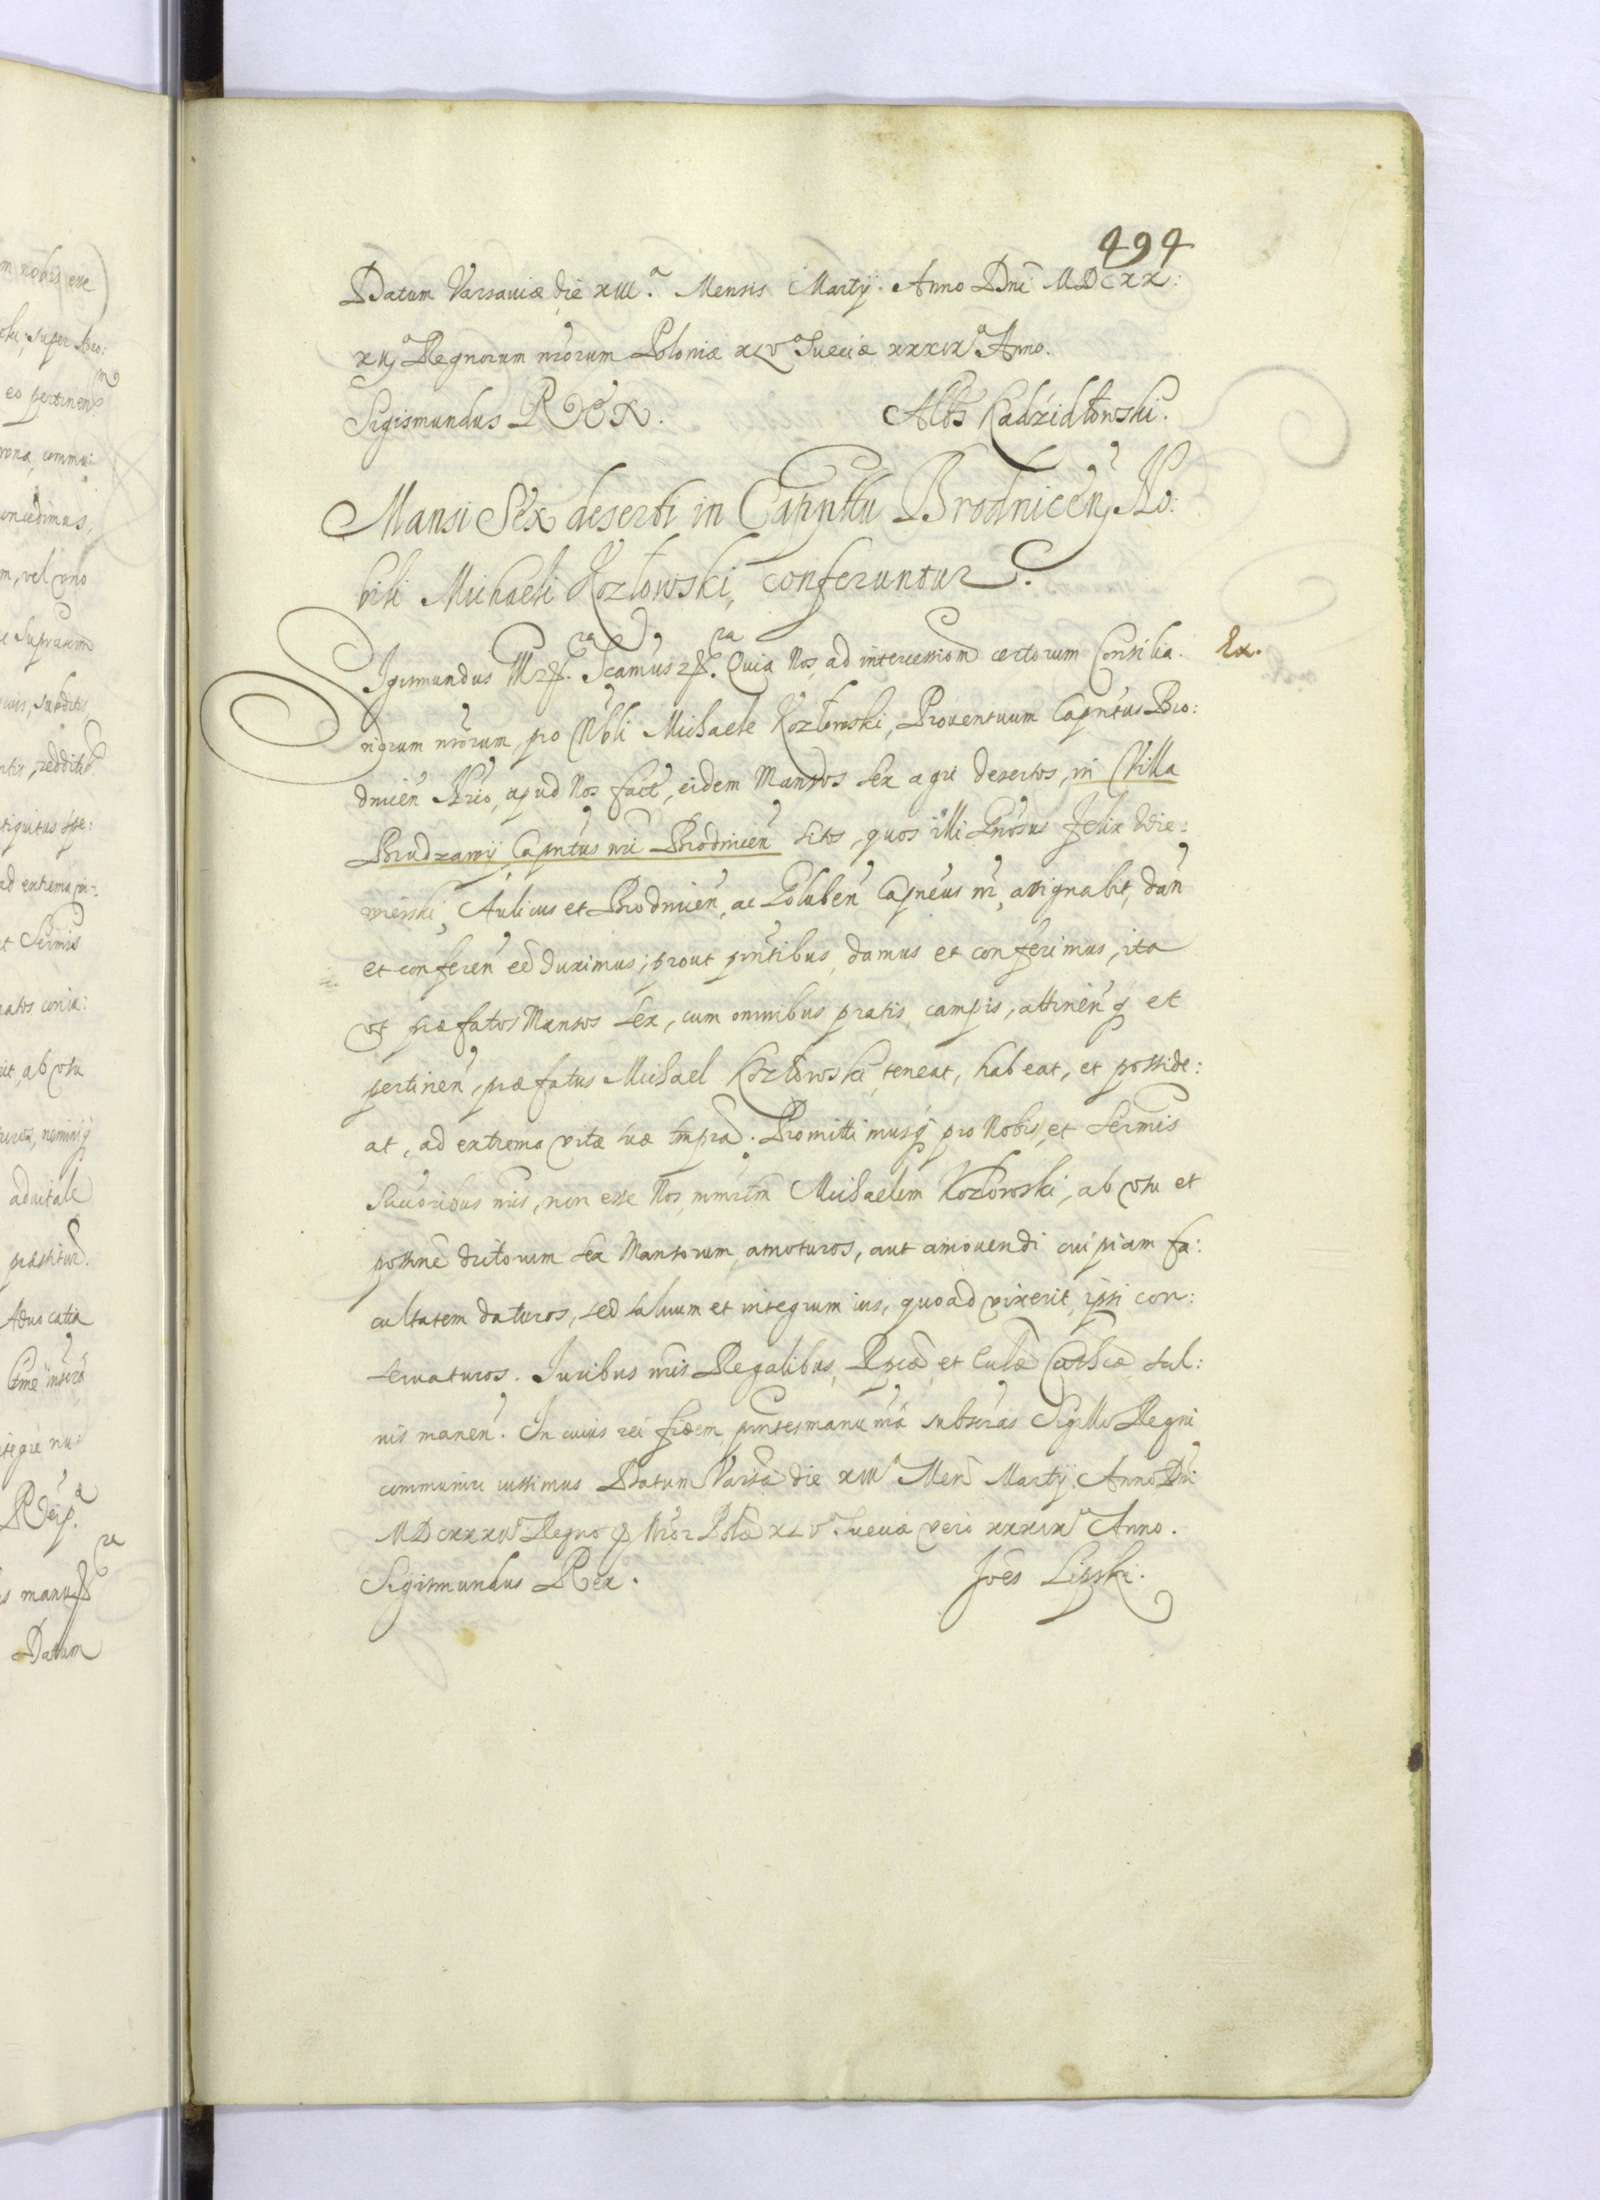 494
Datum Varsaviæ die XIII.a Mensis Martij. Anno Dni MDCXX:
XIJ Regnorum nrorum Poloniæ XLV Sueciæ XXXIX Anno.
Sigismundus REX. Albs Kadzidłowski.
Mansi Sex deserti in Capnttu Brodnicen No:
bili Michaeli Kozłowski, conferuntur.
Sigismundus Quia Nos, ad intercession certorum Consilia: Ex.
riorum nrorum, pro Nbli Michaele Kozłowski, Prouentuum Capntus Bro:
dnicen apud Nos facte, eidem Mansos sex agri desertos, in Villa
Brudzawy Capntus nri Brodnicen sitos, quos illi Gnosus Felix Wie:
wierski, Aulicus et Brodnicen, ac Goluben Capneus nr, assignabit, dan
et conferen ee duximus; prout pntibus damus et conferimus, ita
vt præfatos Mansos sex, cum omnibus pratis, campis, attinen q et
pertinen, præfatus Michael Kozłowski, teneat, habeat, et posside:
at, ad extrema vitæ suæ tmpra. Promittimusq pro Nobis, et Sermis
Succoribus nris, non esse Nos, mmrtm Michaelem Kozłowski, ab vsu et
possne dictorum sex Mansorum, amoturos, aut amouendi cuipiam fa:
cultatem daturos, sed saluum et integrum ius, quoad vixerit, ipsi con:
seruaturos. Iuribus nris Regalibus, Rpcæ, et Cclæ Cathcæ sal:
uis manen. In cuius rei fidem, pntes manu nra subscras Sigillo Regni
communiri iussimus Datum Varsa die XIII Men Martij. Anno Dni
MDCXXXII Regno Nror Polæ XLV Sueciæ vero XXXIX Anno.
Sigismundus Rex. Joes Lipski.